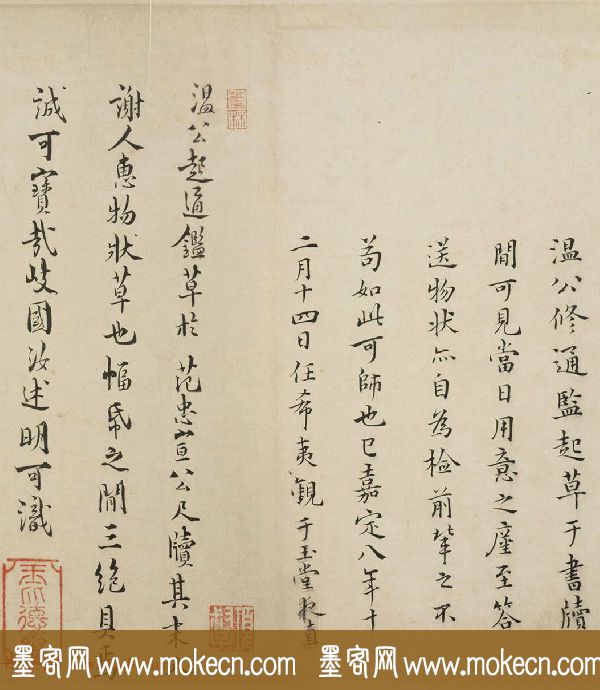 温公修通監起草于書牘
間可見當日用意之廑至答
送物狀亦自為檢前輩之不
苟如此可師也已嘉定八年十
二月十四日任希夷觀于玉堂夜直
温公起通鑑草於范忠宣公尺牘其末
謝人惠物狀草也幅帋之間三絶具焉
誠可寶哉歧國汝述明可識
墨客网 www.mokecn.com 墨客网 www.mokecn.com